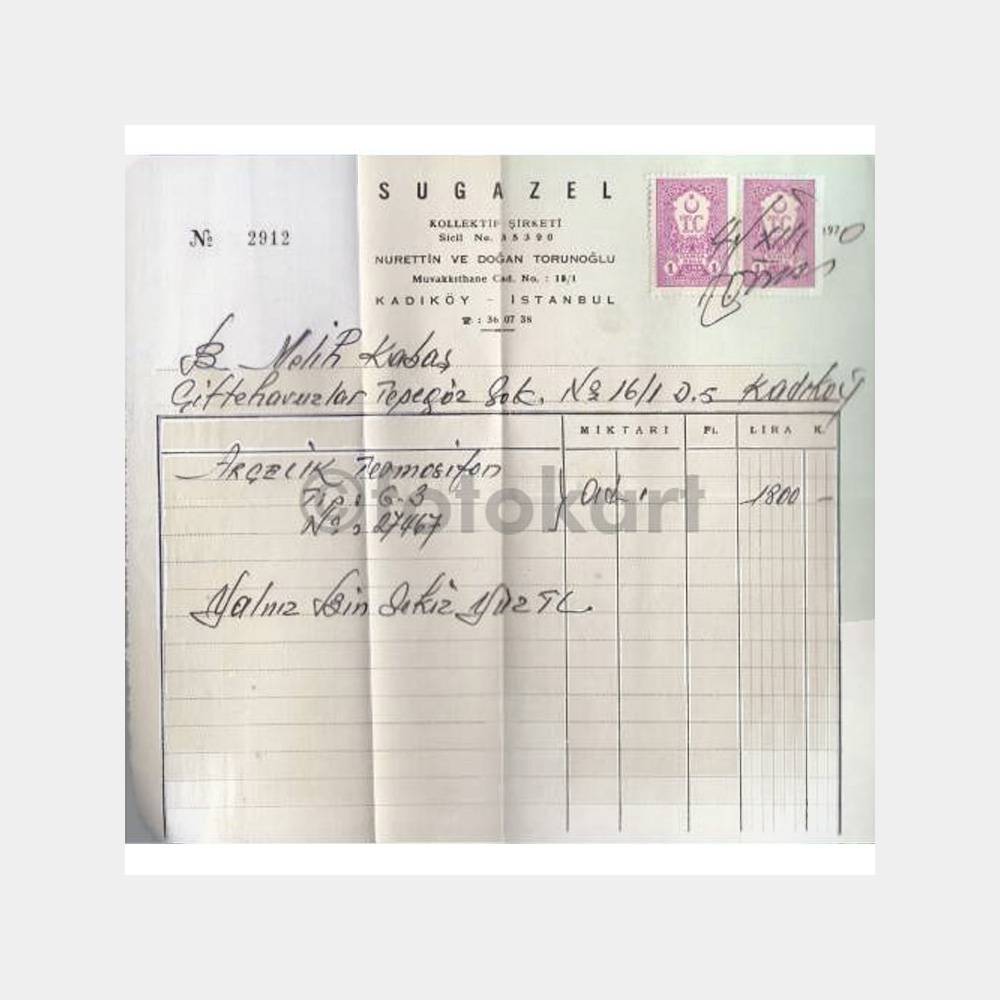 SUGAZEL
KOLLEKTİF ŞİRKETİ
Sicil No. 35390
№ 2912
NURETTİN VE DOĞAN TORUNOĞLU
Muvakkithane Cad. No. : 15/1
KADIKÖY - İSTANBUL
☎ : 36 07 38
T.C. T.C.
1 1 1
4/XII/1970
B. Melih Kabaş
Çiftehavuzlar Tepegöz Sok. No 16/1 D.5 Kadıköy
MİKTARI Fi. LİRA K.
ARÇELİK Termosifon
Tip: G-3 Ad. 1 1800 -
No: 27467
Yalnız Bin Sekiz Yüz TL
©fotokart